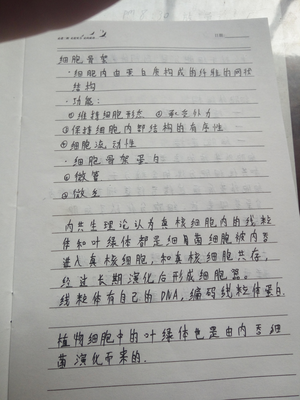 细胞骨架
·细胞内由蛋白质构成的纤维的网络
结构
·功能:
①维持细胞形态 ②承受外力
③保持细胞内部结构的有序性
④细胞流动性
·细胞骨架蛋白
①微管
②微丝
内共生理论认为真核细胞内的线粒
体和叶绿体都是细菌细胞被内吞
进入真核细胞,和真核细胞共存,
经过长期演化后形成细胞器。
线粒体有自己的DNA,编码线粒体蛋白.
植物细胞中的叶绿体也是由内吞细
菌演化而来的.